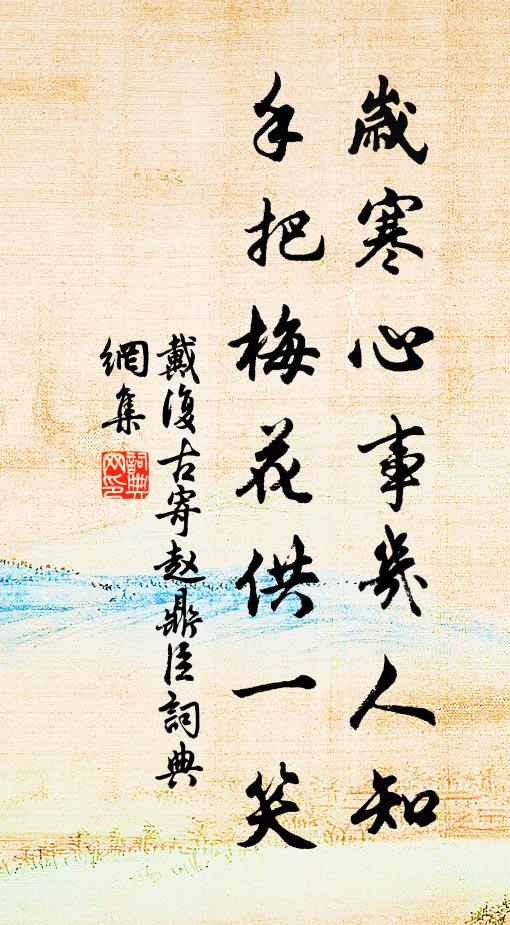 歲寒心事幾人知
手把梅花供一笑
戴復古寄赵鼎臣詞典
網集
詞典
网印